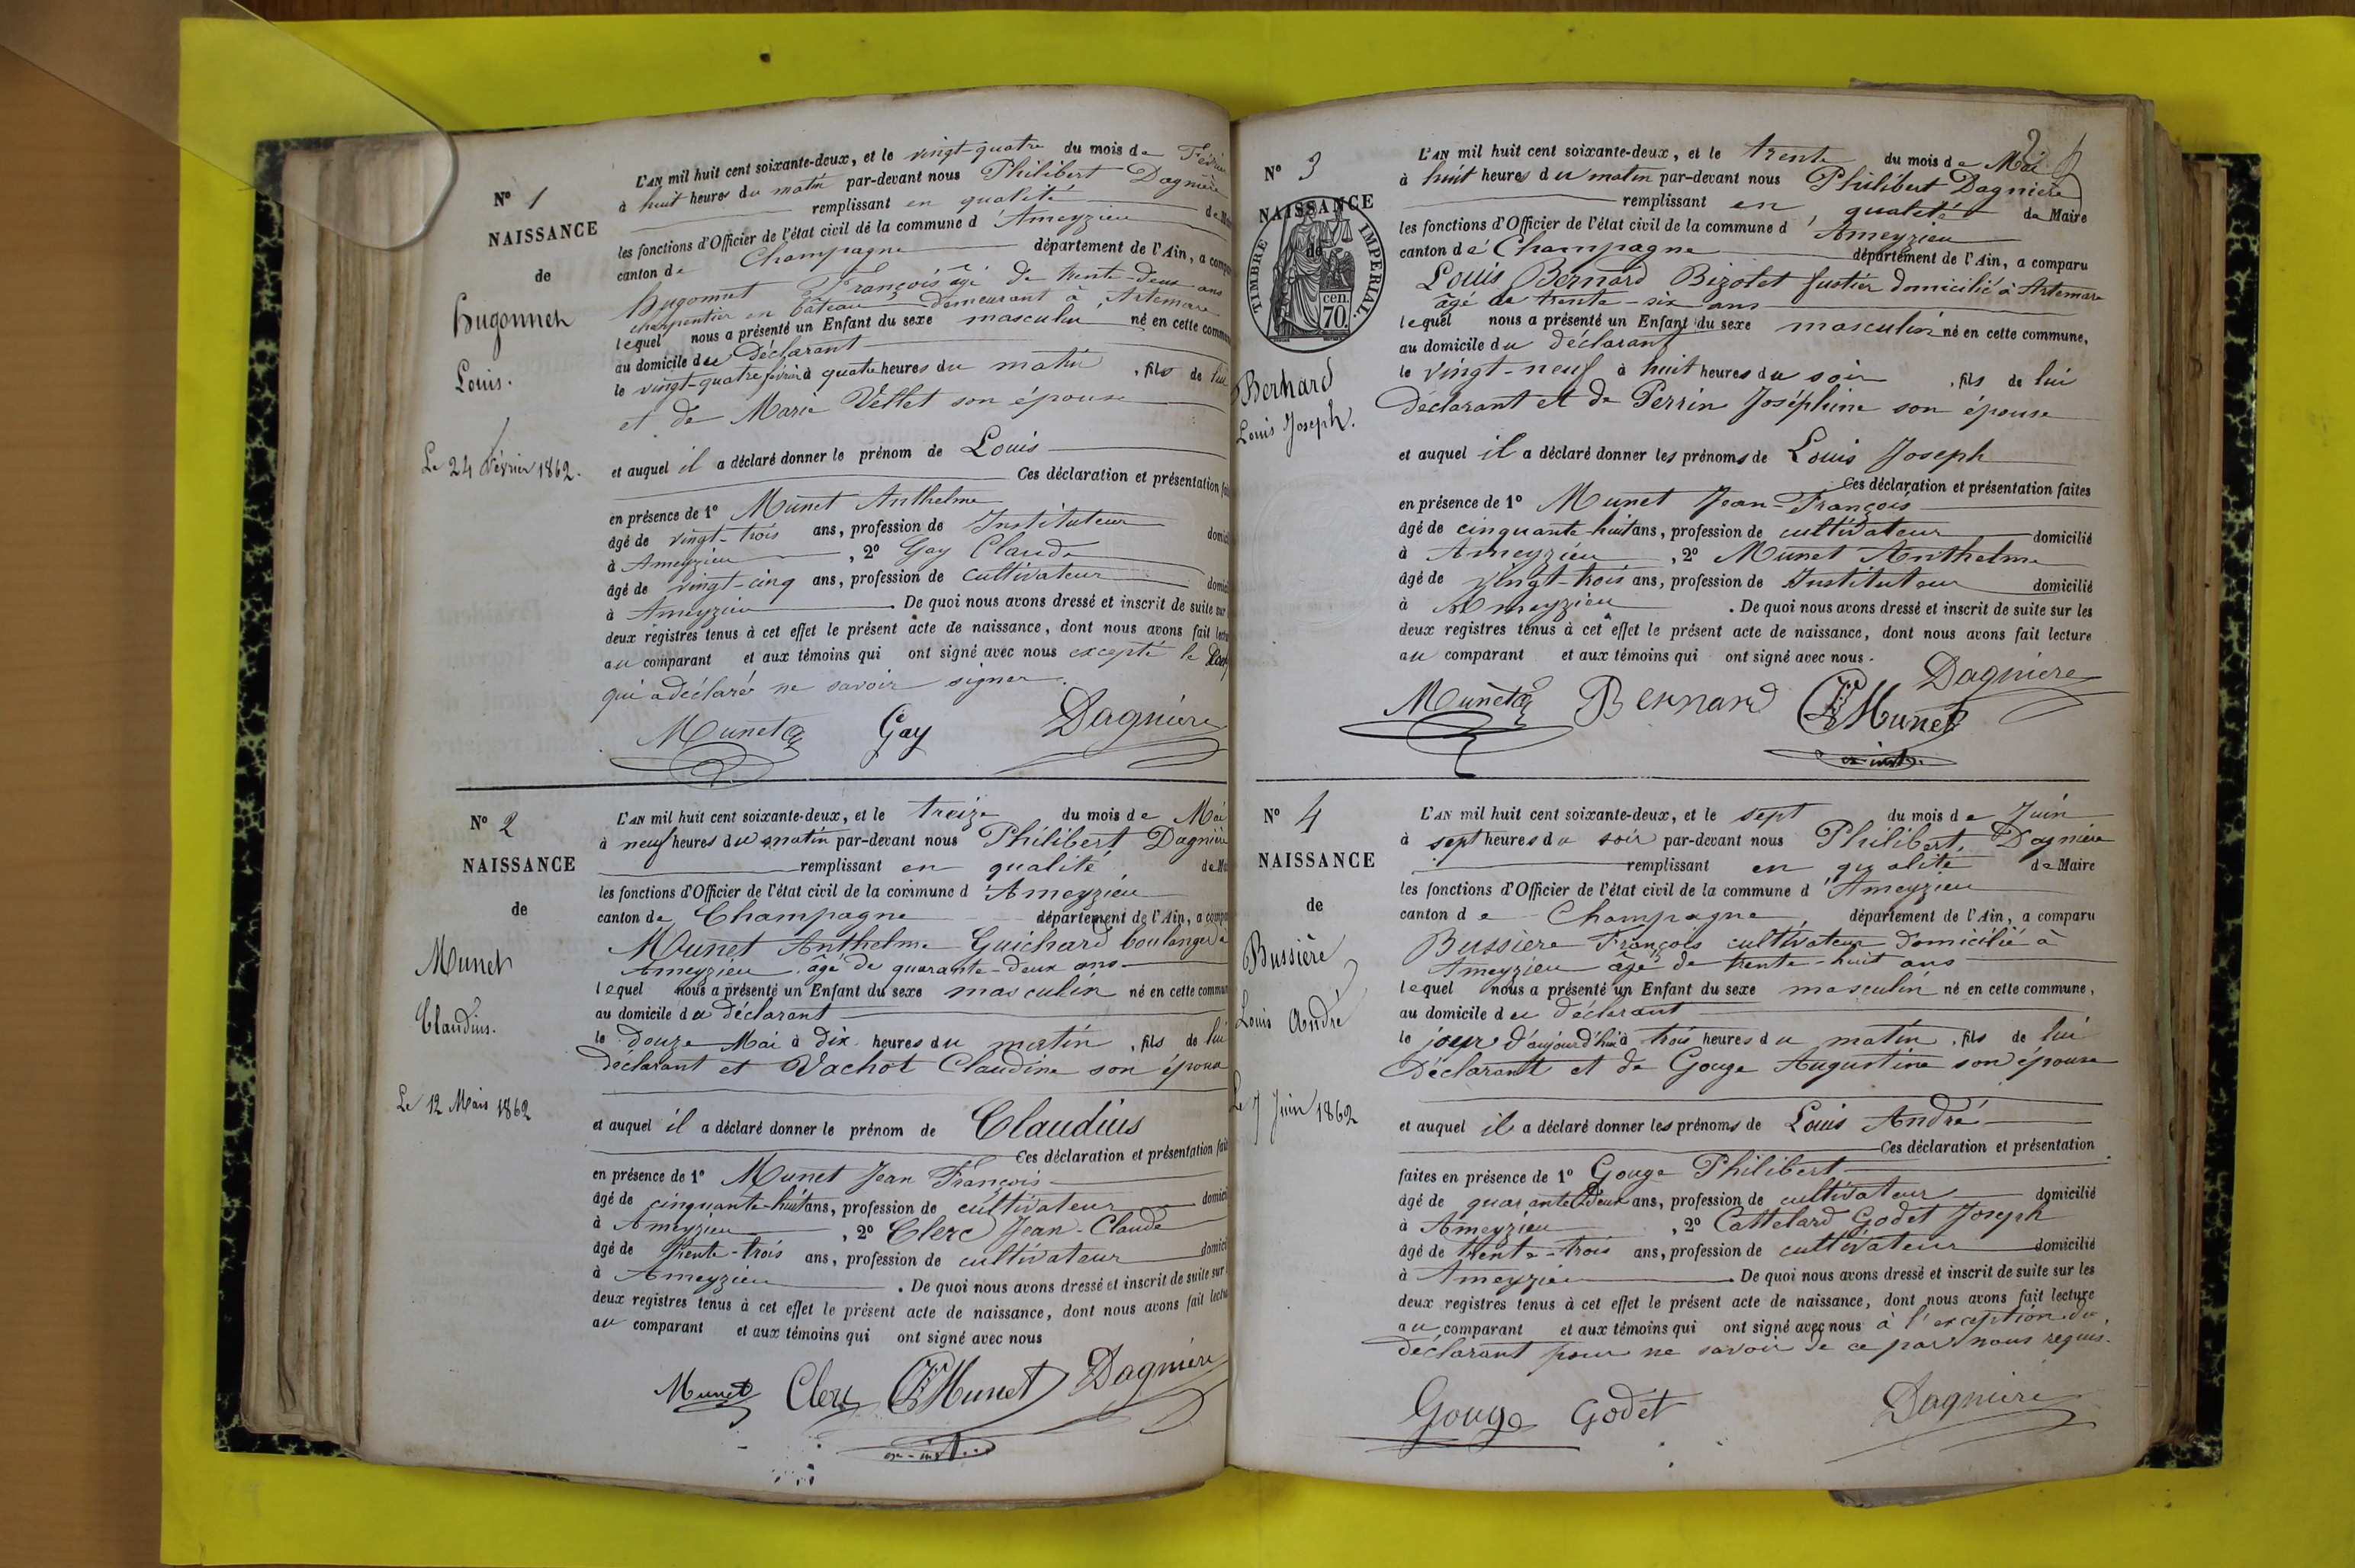 N° 1
NAISSANCE
de
Hugonnet
Louis.
Le 24 Février 1862.
L'AN mil huit cent soixante-deux, et le vingt-quatre du mois de Février
à huit heures du matin par-devant nous Philibert Dagnière
remplissant en qualité de
les fonctions d'Officier de l'état civil de la commune d'Ameyzieu
canton de Champagne département de l'Ain, a
Hugonnet François âgé de trente-deux ans
charpentier en bateau, demeurant à Artemare
lequel nous a présenté un Enfant du sexe masculin né en cette
au domicile du déclarant
le vingt-quatre février à quatre heures du matin, fils de lui
et de Marie Vettet son épouse
et auquel il a déclaré donner le prénom de Louis
Ces déclaration et présentation
en présence de 1° Munet Anthelme
âgé de vingt-trois ans, profession de Instituteur
à Ameyzieu, 2° Gay Claude
âgé de vingt-cinq ans, profession de cultivateur
à Ameyzieu. De quoi nous avons dressé et inscrit de suite sur
deux registres tenus à cet effet le présent acte de naissance, dont nous avons fait
au comparant et aux témoins qui ont signé avec nous excepté le
qui a déclaré ne savoir signer.
Munet Gay Dagnière
N° 2
NAISSANCE
de
Munet
Claudius.
Le 12 Mais 1862
L'AN mil huit cent soixante-deux, et le treize du mois de Mai
à neuf heures du matin par-devant nous Philibert Dagnière
remplissant en qualité de
les fonctions d'Officier de l'état civil de la commune d'Ameyzieu
canton de Champagne département de l'Ain, a
Munet Anthelme Guichard boulanger à
Ameyzieu âgé de quarante-deux ans
lequel nous a présenté un Enfant du sexe masculin né en cette
au domicile du déclarant
le douze Mai à dix heures du matin, fils de lui
déclarant et Vachot Claudine son épouse
et auquel il a déclaré donner le prénom de Claudius
Ces déclaration et présentation
en présence de 1° Munet Jean François
âgé de cinquante-huit ans, profession de cultivateur
à Ameyzieu, 2° Clerc Jean-Claude
âgé de trente-trois ans, profession de cultivateur
à Ameyzieu. De quoi nous avons dressé et inscrit de suite sur
deux registres tenus à cet effet le présent acte de naissance, dont nous avons fait
au comparant et aux témoins qui ont signé avec nous
Munet Clerc Munet Dagnière
N° 3
NAISSANCE
de
TIMBRE IMPERIAL.
cen.
70
Bernard
Louis Joseph.
L'AN mil huit cent soixante-deux, et le trente du mois de Mai
à huit heures du matin par-devant nous Philibert Dagnière
remplissant en qualité de Maire
les fonctions d'Officier de l'état civil de la commune d'Ameyzieu
canton de Champagne département de l'Ain, a comparu
Louis Bernard Bizolet fustier domicilié à Artemare
âgé de trente-six ans
lequel nous a présenté un Enfant du sexe masculin né en cette commune,
au domicile du déclarant
le vingt-neuf à huit heures du soir, fils de lui
déclarant et de Perrin Joséphine son épouse
et auquel il a déclaré donner les prénoms de Louis Joseph
Ces déclaration et présentation faites
en présence de 1° Munet Jean-François
âgé de cinquante-huit ans, profession de cultivateur domicilié
à Ameyzieu, 2° Munet Anthelme
âgé de vingt-trois ans, profession de Instituteur domicilié
à Ameyzieu. De quoi nous avons dressé et inscrit de suite sur les
deux registres tenus à cet effet le présent acte de naissance, dont nous avons fait lecture
au comparant et aux témoins qui ont signé avec nous.
Munet Bernard Munet Dagnière
N° 4
NAISSANCE
de
Bussière
Louis André
Le 7 Juin 1862
L'AN mil huit cent soixante-deux, et le sept du mois de Juin
à sept heures du soir par-devant nous Philibert Dagnière
remplissant en qualité de Maire
les fonctions d'Officier de l'état civil de la commune d'Ameyzieu
canton de Champagne, département de l'Ain, a comparu
Bussière François cultivateur domicilié à
Ameyzieu âgé de trente-huit ans
lequel nous a présenté un Enfant du sexe masculin né en cette commune,
au domicile du déclarant
le jour d'aujourd'hui à trois heures du matin, fils de lui
déclarant et de Gouge Augustine son épouse
et auquel il a déclaré donner les prénoms de Louis André
Ces déclaration et présentation
faites en présence de 1° Gouge Philibert
âgé de quarante deux ans, profession de cultivateur domicilié
à Ameyzieu, 2° Cattelard Godet Joseph
âgé de trente-trois ans, profession de cultivateur domicilié
à Ameyzieu. De quoi nous avons dressé et inscrit de suite sur les
deux registres tenus à cet effet le présent acte de naissance, dont nous avons fait lecture
au comparant et aux témoins qui ont signé avec nous à l'exception du
déclarant pour ne savoir de ce par nous requis.
Gouge Godet Dagnière